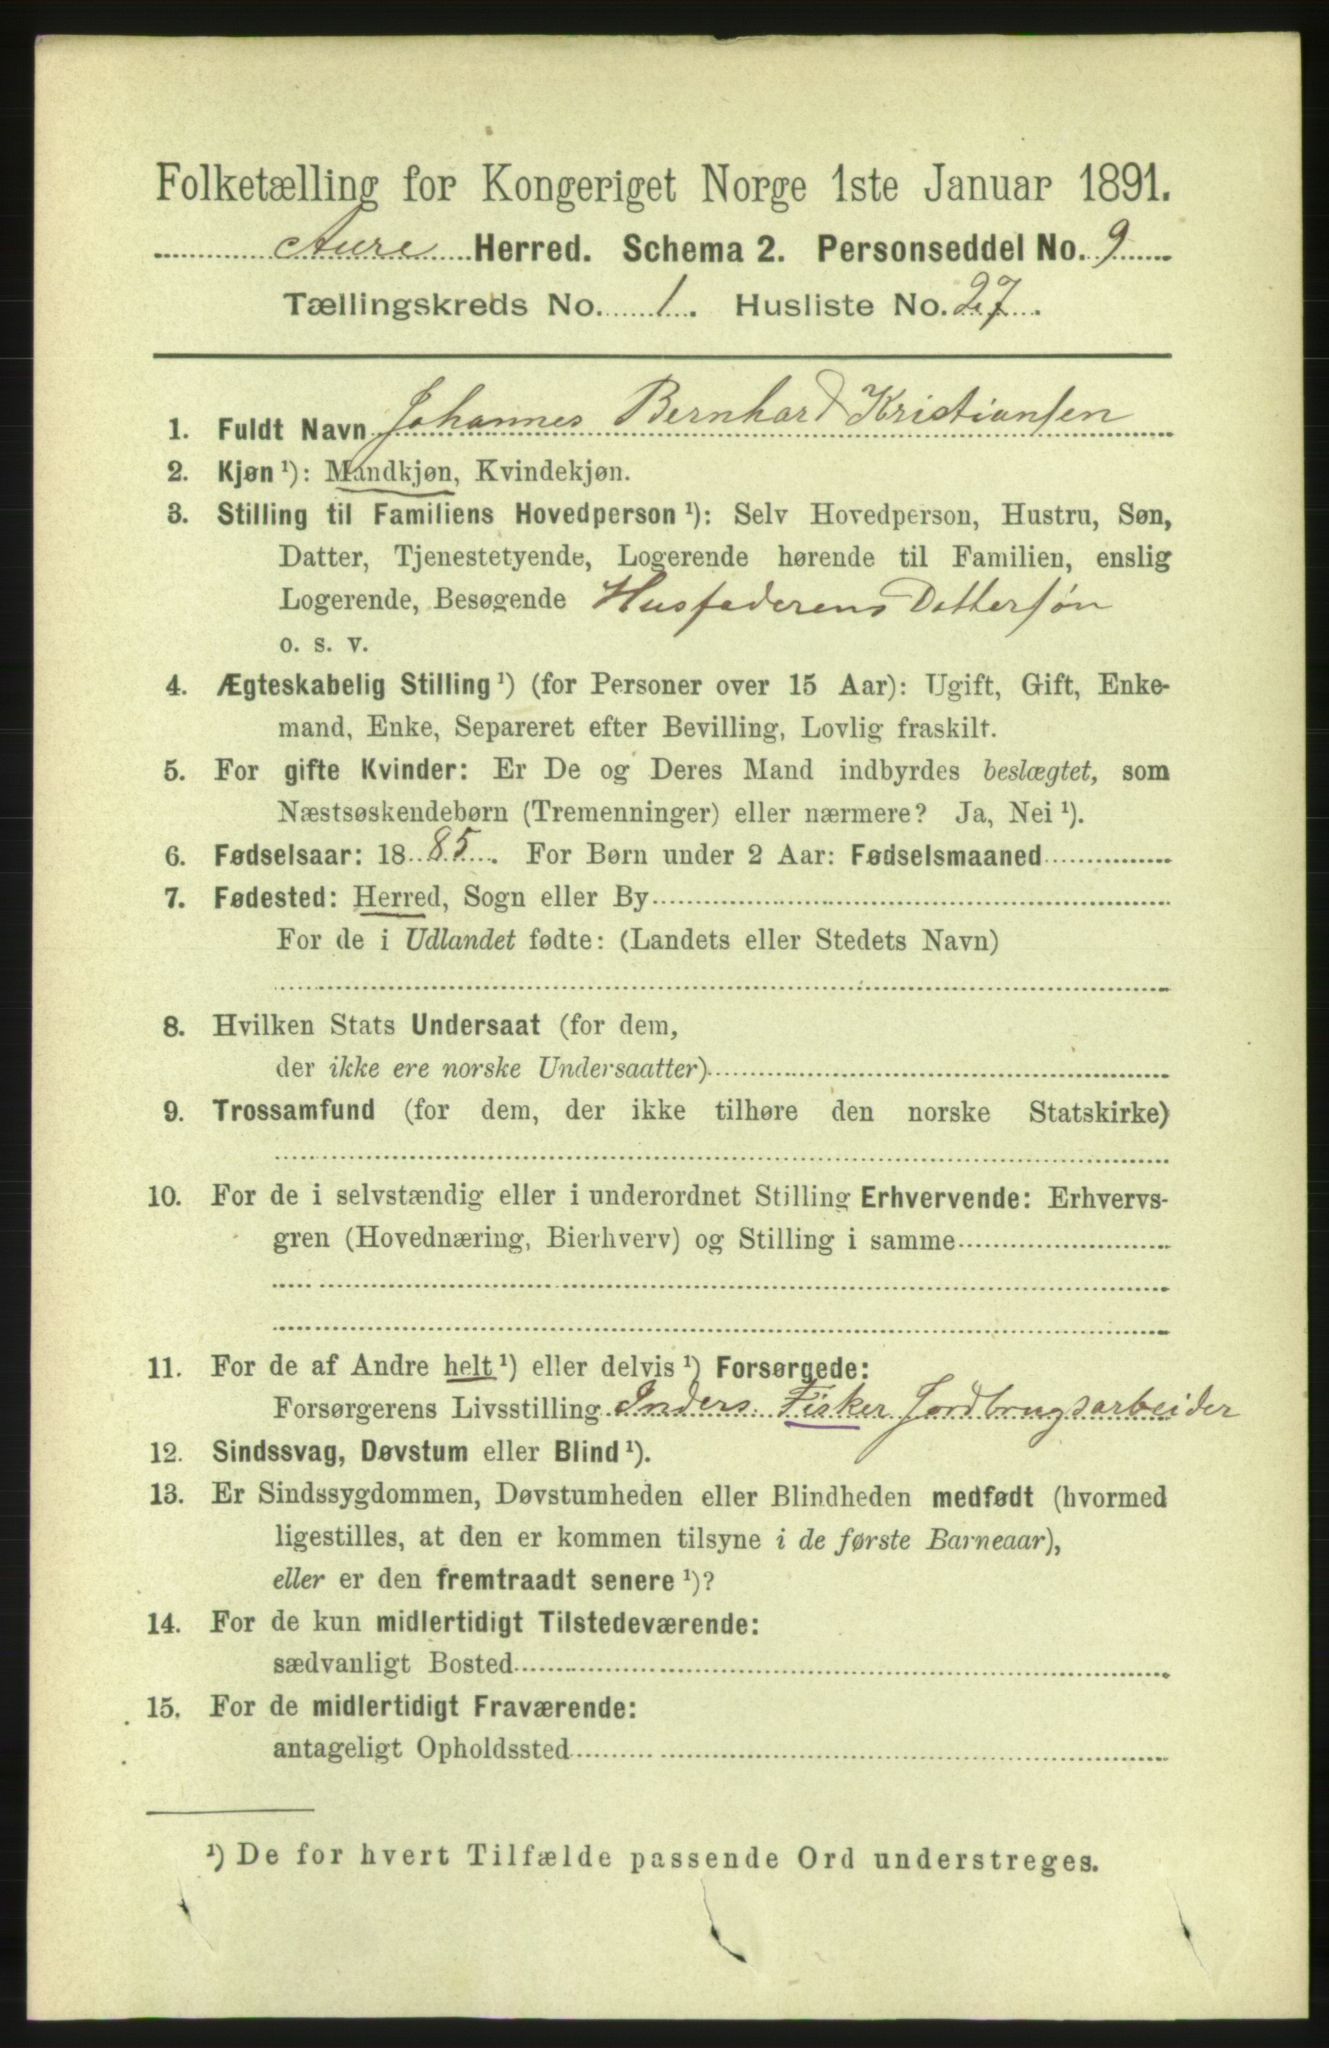 Folketælling for Kongeriget Norge 1ste Januar 1891.
Aure Herred. Schema 2. Personseddel No. 9
Tællingskreds No. 1. Husliste No. 27.
1. Fuldt Navn Johannes Bernhard Kristiansen
2. Kjøn ¹): Mandkjøn, Kvindekjøn.
3. Stilling til Familiens Hovedperson ¹): Selv Hovedperson, Hustru, Søn,
Datter, Tjenestetyende, Logerende hørende til Familien, enslig
Logerende, Besøgende Husfaderens Dattersøn
o. s. v.
4. Ægteskabelig Stilling ¹) (for Personer over 15 Aar): Ugift, Gift, Enke-
mand, Enke, Separeret efter Bevilling, Lovlig fraskilt.
5. For gifte Kvinder: Er De og Deres Mand indbyrdes beslægtet, som
Næstsøskendebørn (Tremenninger) eller nærmere? Ja, Nei ¹).
6. Fødselsaar: 1885. For Børn under 2 Aar: Fødselsmaaned
7. Fødested: Herred, Sogn eller By
For de i Udlandet fødte: (Landets eller Stedets Navn)
8. Hvilken Stats Undersaat (for dem,
der ikke ere norske Undersaatter)
9. Trossamfund (for dem, der ikke tilhøre den norske Statskirke)
10. For de i selvstændig eller i underordnet Stilling Erhvervende: Erhvervs-
gren (Hovednæring, Bierhverv) og Stilling i samme
11. For de af Andre helt ¹) eller delvis ¹) Forsørgede:
Forsørgerens Livsstilling Inders. Fisker Jordbrugsarbeider
12. Sindssvag, Døvstum eller Blind ¹).
13. Er Sindssygdommen, Døvstumheden eller Blindheden medfødt (hvormed
ligestilles, at den er kommen tilsyne i de første Barneaar),
eller er den fremtraadt senere ¹)?
14. For de kun midlertidigt Tilstedeværende:
sædvanligt Bosted
15. For de midlertidigt Fraværende:
antageligt Opholdssted
¹) De for hvert Tilfælde passende Ord understreges.